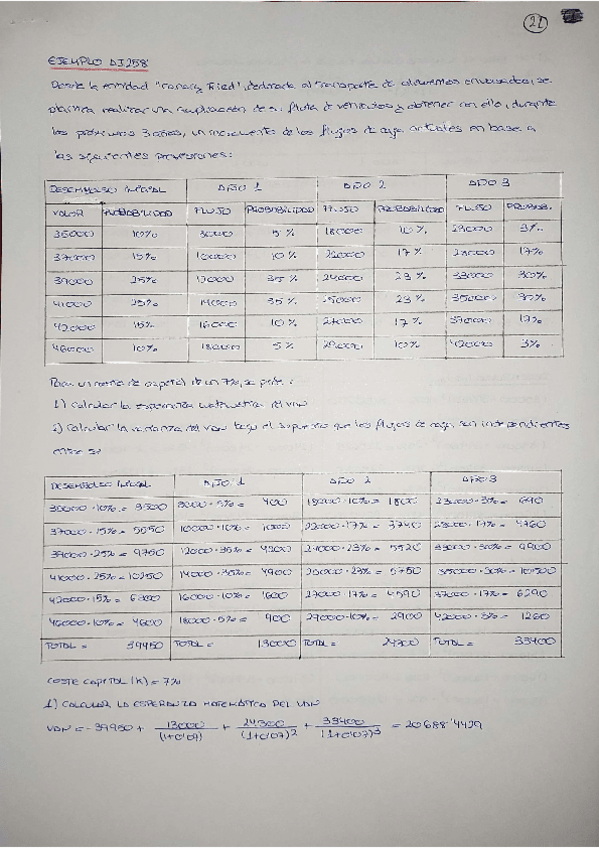 21
EJEMPLO DI258
Desde la entidad "Canary Fried", dedicada al transporte de alimentos envasados, se
planifica realizar una ampliación de su flota de vehículos y obtener con ello, durante
los próximos 3 años, un incremento de los flujos de caja actuales en base a
las siguientes previsiones:
DESEMBOLSO INICIAL AÑO 1 AÑO 2 AÑO 3
VALOR PROBABILIDAD FLUJO PROBABILIDAD FLUJO PROBABILIDAD FLUJO PROBAB.
35000 10% 8000 5% 18000 10% 23000 3%
37000 15% 10000 10% 22000 17% 28000 17%
39000 25% 12000 35% 24000 23% 33000 30%
41000 25% 14000 35% 25000 23% 35000 30%
42000 15% 16000 10% 27000 17% 37000 17%
46000 10% 18000 5% 29000 10% 42000 3%
Para un coste de capital de un 7%, se pide:
1) calcular la esperanza matemática del VAN
2) calcular la varianza del VAN bajo el supuesto que los flujos de caja son independientes
entre sí
DESEMBOLSO INICIAL AÑO 1 AÑO 2 AÑO 3
35000·10% = 3500 8000·5% = 400 18000·10% = 1800 23000·3% = 690
37000·15% = 5550 10000·10% = 1000 22000·17% = 3740 28000·17% = 4760
39000·25% = 9750 12000·35% = 4200 24000·23% = 5520 33000·30% = 9900
41000·25% = 10250 14000·35% = 4900 25000·23% = 5750 35000·30% = 10500
42000·15% = 6300 16000·10% = 1600 27000·17% = 4590 37000·17% = 6290
46000·10% = 4600 18000·5% = 900 29000·10% = 2900 42000·3% = 1260
TOTAL = 39950 TOTAL = 13000 TOTAL = 24300 TOTAL = 33400
COSTE CAPITAL (K) = 7%
1) CALCULAR LA ESPERANZA MATEMÁTICA DEL VAN
VAN = -39950 + 13000/(1+0'07) + 24300/(1+0'07)2 + 33400/(1+0'07)3 = 20688'4429